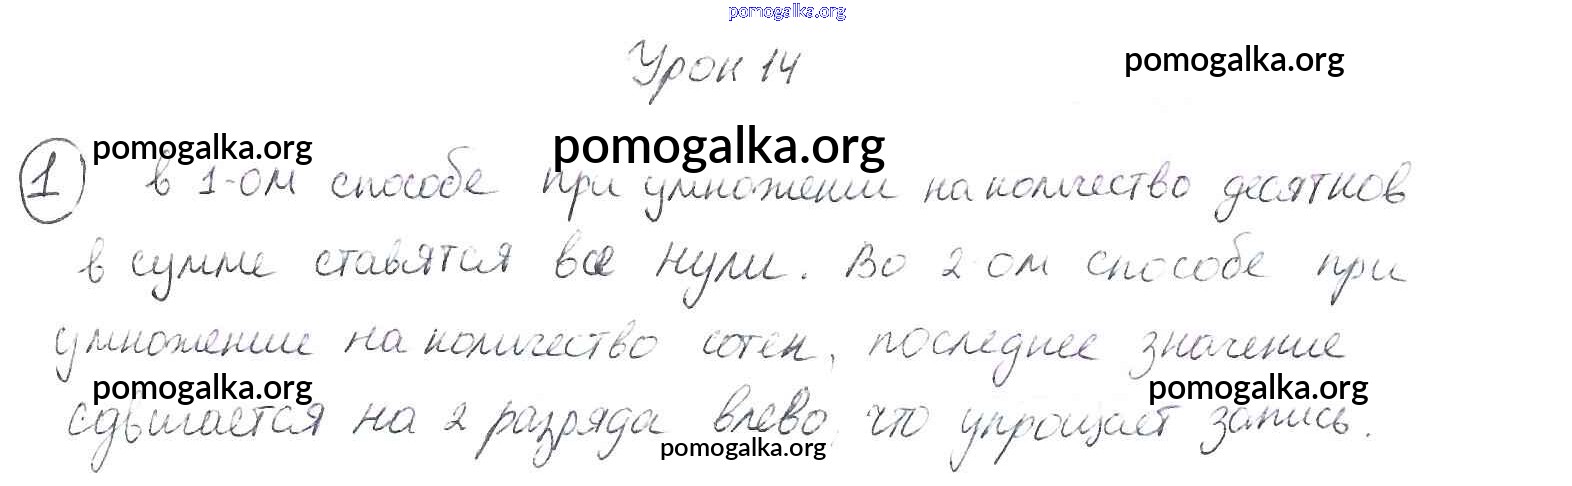 pomogalka.org
Урок 14
pomogalka.org
pomogalka.org
pomogalka.org
1 в 1-ом способе при умножении на количество десятков
в сумме ставятся все нули. Во 2-ом способе при
умножении на количество сотен, последнее значение
pomogalka.org
pomogalka.org
сдвигается на 2 разряда влево, что упрощает запись.
pomogalka.org